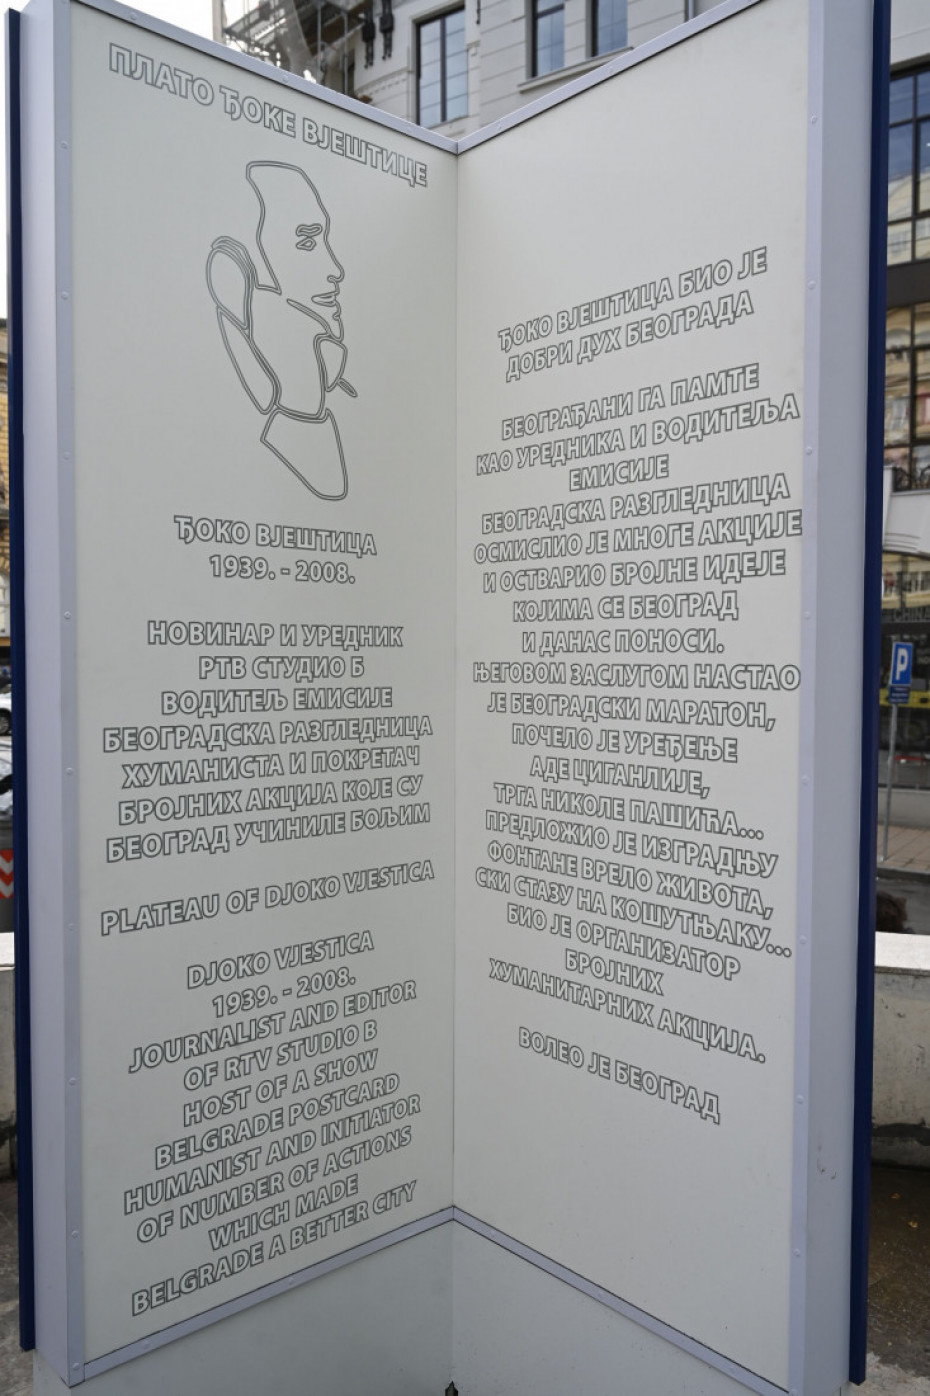 ПЛАТО ЂОКЕ ВЈЕШТИЦЕ
ЂОКО ВЈЕШТИЦА
1939. - 2008.
НОВИНАР И УРЕДНИК
РТВ СТУДИО Б
ВОДИТЕЉ ЕМИСИЈЕ
БЕОГРАДСКА РАЗГЛЕДНИЦА
ХУМАНИСТА И ПОКРЕТАЧ
БРОЈНИХ АКЦИЈА КОЈЕ СУ
БЕОГРАД УЧИНИЛЕ БОЉИМ
PLATEAU OF DJOKO VJESTICA
DJOKO VJESTICA
1939. - 2008.
JOURNALIST AND EDITOR
OF RTV STUDIO B
HOST OF A SHOW
BELGRADE POSTCARD
HUMANIST AND INITIATOR
OF NUMBER OF ACTIONS
WHICH MADE
BELGRADE A BETTER CITY
ЂОКО ВЈЕШТИЦА БИО ЈЕ
ДОБРИ ДУХ БЕОГРАДА
БЕОГРАЂАНИ ГА ПАМТЕ
КАО УРЕДНИКА И ВОДИТЕЉА
ЕМИСИЈЕ
БЕОГРАДСКА РАЗГЛЕДНИЦА
ОСМИСЛИО ЈЕ МНОГЕ АКЦИЈЕ
И ОСТВАРИО БРОЈНЕ ИДЕЈЕ
КОЈИМА СЕ БЕОГРАД
И ДАНАС ПОНОСИ.
ЊЕГОВОМ ЗАСЛУГОМ НАСТАО
ЈЕ БЕОГРАДСКИ МАРАТОН,
ПОЧЕЛО ЈЕ УРЕЂЕЊЕ
АДЕ ЦИГАНЛИЈЕ,
ТРГА НИКОЛЕ ПАШИЋА...
ПРЕДЛОЖИО ЈЕ ИЗГРАДЊУ
ФОНТАНЕ ВРЕЛО ЖИВОТА,
СКИ СТАЗУ НА КОШУТЊАКУ...
БИО ЈЕ ОРГАНИЗАТОР
БРОЈНИХ
ХУМАНИТАРНИХ АКЦИЈА.
ВОЛЕО ЈЕ БЕОГРАД
P